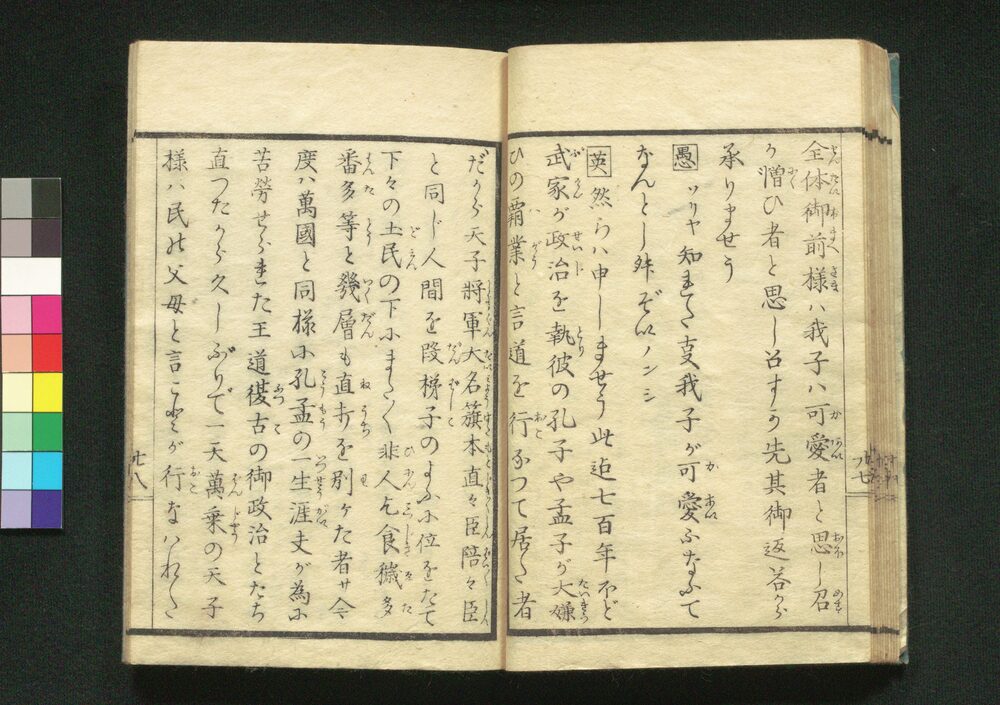 全体御前様ハ我子ハ可愛者と思し召
か憎ひ者と思し召すか先其御返答から
承りませう
愚 ソリヤ知れた事我子が可愛ふなふて
なんとし舛ぞいノンシ
英 然らハ申しませう此迠七百年ほど
武家が政治を執彼の孔子や孟子が大嫌
ひの覇業と言道を行なつて居た者
だから天子將軍大名籏本直々臣陪々臣
と同じ人間を段梯子のよふに位をたて
下々の土民の下にまた〱非人乞食穢多
番多等と幾層も直打を別けた者サ今
度ハ萬國と同様に孔孟の一生涯夫が為に
苦勞せられた王道復古の御政治とたち
直つたから久しぶりで一天萬乗の天子
様ハ民の父母と言ことが行なハれた
廿七
廿八